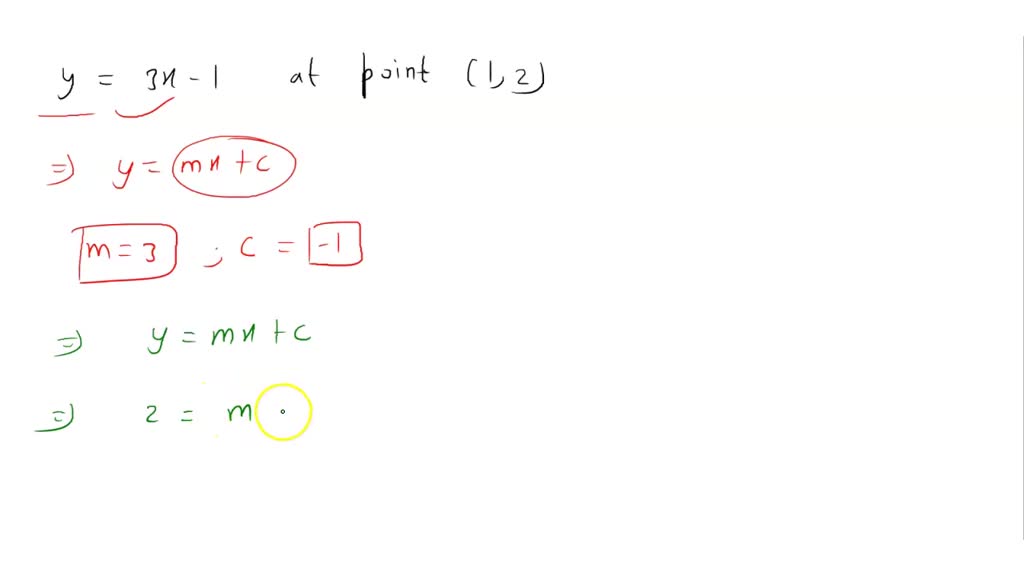 y = 3x - 1 at point (1, 2)
⇒ y = mx + c
m = 3 ; c = -1
⇒ y = mx + c
⇒ 2 = m